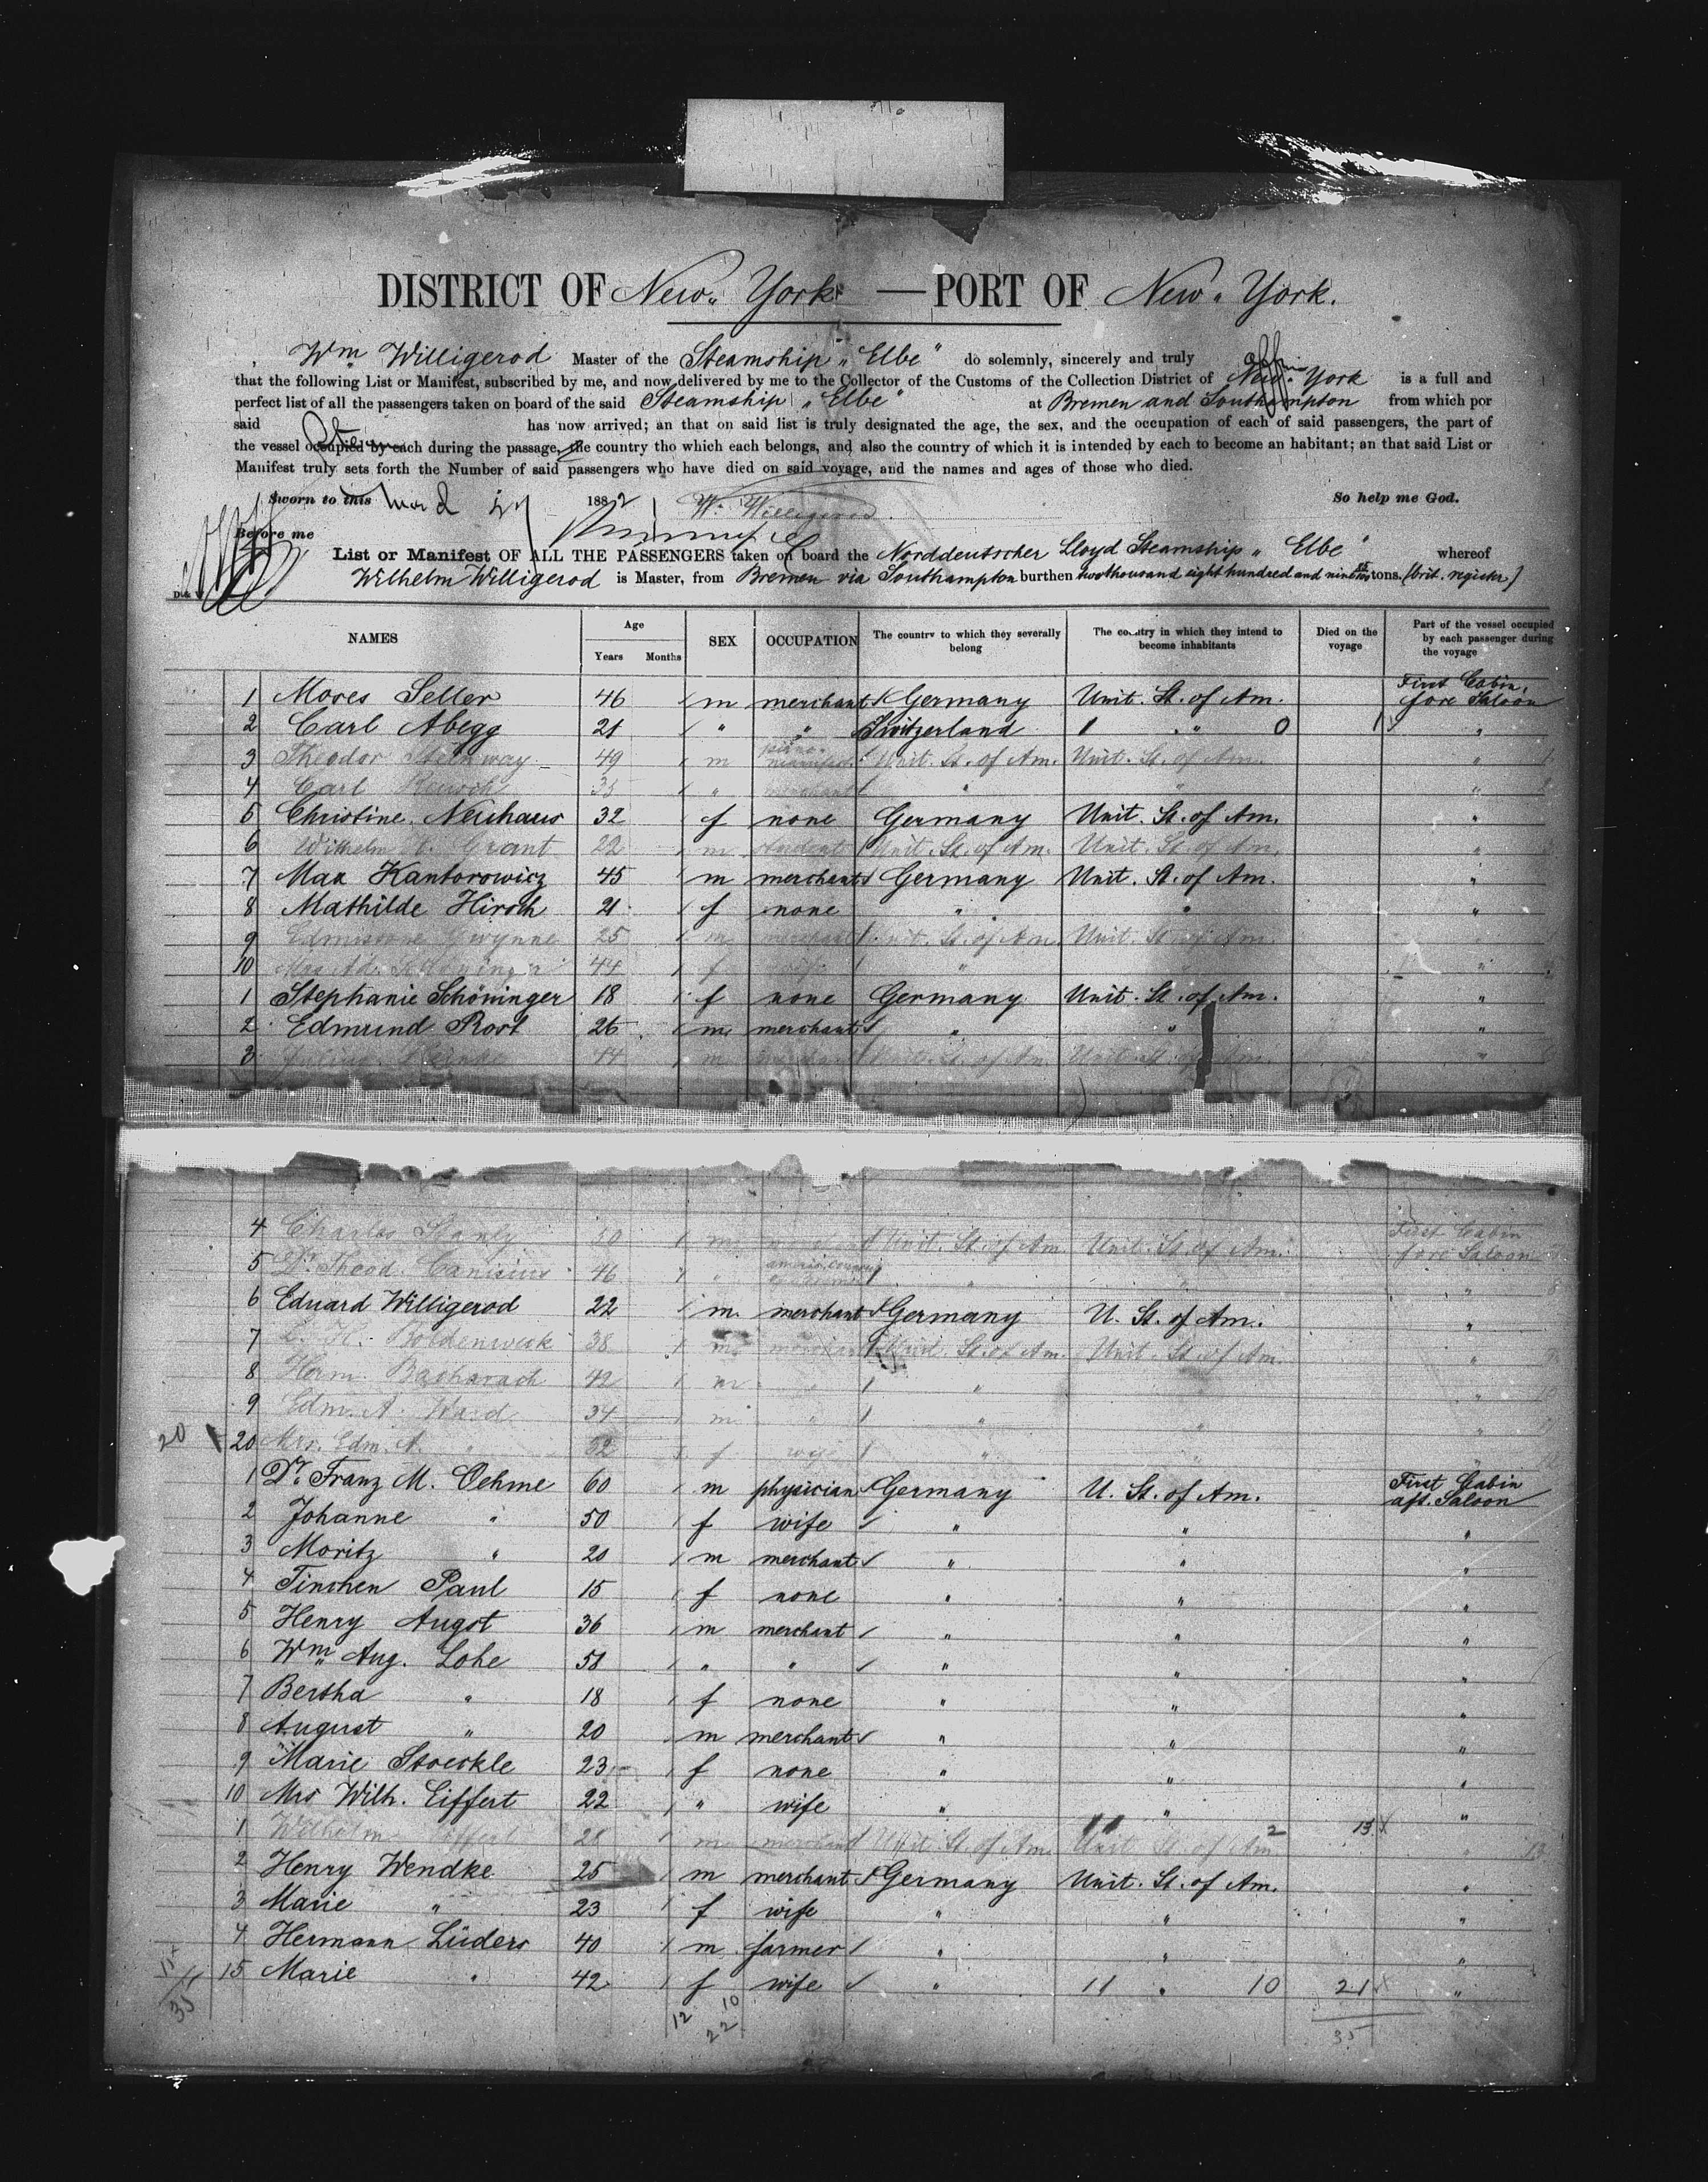 DISTRICT OF New York — PORT OF New York.
Wm. Willigerod Master of the Steamship "Elbe" do solemnly, sincerely and truly
that the following List or Manifest, subscribed by me, and now delivered by me to the Collector of the Customs of the Collection District of New York is a full and
perfect list of all the passengers taken on board of the said Steamship "Elbe" at Bremen and Southampton from which por
said has now arrived; an that on said list is truly designated the age, the sex, and the occupation of each of said passengers, the part of
the vessel occupied by each during the passage, the country tho which each belongs, and also the country of which it is intended by each to become an habitant; an that said List or
Manifest truly sets forth the Number of said passengers who have died on said voyage, and the names and ages of those who died.
Sworn to this 1882 W. Willigerod So help me God.
Before me
List or Manifest OF ALL THE PASSENGERS taken on board the Norddeutscher Lloyd Steamship "Elbe" whereof
Wilhelm Willigerod is Master, from Bremen via Southampton burthen two thousand eight hundred and tons. (brit. register)
NAMES Age Years Months SEX OCCUPATION The country to which they severally belong The country in which they intend to become inhabitants Died on the voyage Part of the vessel occupied by each passenger during the voyage
1 Moses Seller 46 m merchant Germany Unit. St. of Am. First Cabin, fore Saloon
2 Carl Abegg 21 " " Switzerland " 0 1 "
3 Theodor Steinway 49 m piano manufact. Unit. St. of Am. Unit. St. of Am. "
4 Carl 35 " merchant " " "
5 Christine Neuhaus 32 f none Germany Unit. St. of Am. "
6 Wilhelm Grant 22 m student Unit. St. of Am. Unit. St. of Am. "
7 Max Kantorowicz 45 m merchant Germany Unit. St. of Am. "
8 Mathilde Hirsch 21 f none " " "
9 Gwynne 25 m merchant Unit. St. of Am. Unit. St. of Am. "
10 44 f wife " "
1 Stephanie Schöninger 18 f none Germany Unit. St. of Am. "
2 Edmund Rost 26 m merchant " " "
3 Julius 44 m merchant Unit. St. of Am. Unit. St. of Am. "
4 Charles Stanly 50 m Unit. St. of Am. Unit. St. of Am. First Cabin fore Saloon
5 Dr. Theod. Canisius 46 " " " "
6 Eduard Willigerod 22 m. merchant Germany U. St. of Am. "
7 Boldenweck 38 m merchant Unit. St. of Am. Unit. St. of Am. "
8 Herm. Bacharach 42 m " " " "
9 Edm. A. Ward 34 m " " " "
20 20 Mrs. Edm. A. " 32 f wife " " "
1 Dr. Franz M. Oehme 60 m physician Germany U. St. of Am. First Cabin aft. Saloon
2 Johanne " 50 f wife " " "
3 Moritz " 20 m merchant " " "
4 Tinchen Paul 15 f none " " "
5 Henry Augst 36 m merchant " " "
6 Wm. Aug. Lohe 58 " " " " "
7 Bertha " 18 f none " " "
8 August " 20 m merchant " " "
9 Marie Stoeckle 23 f none " " "
10 Mrs Wilh. Eiffert 22 " wife " " "
1 Wilhelm Eiffert 28 m merchant Unit. St. of Am. Unit. St. of Am. 11 2 13 " 13
2 Henry Wendke 25 m merchant Germany Unit. St. of Am. "
3 Marie " 23 f wife " " "
4 Hermann Lüders 40 m farmer " " "
15 Marie " 42 f wife " 11 " 10 21 "
35 12 10 22 35